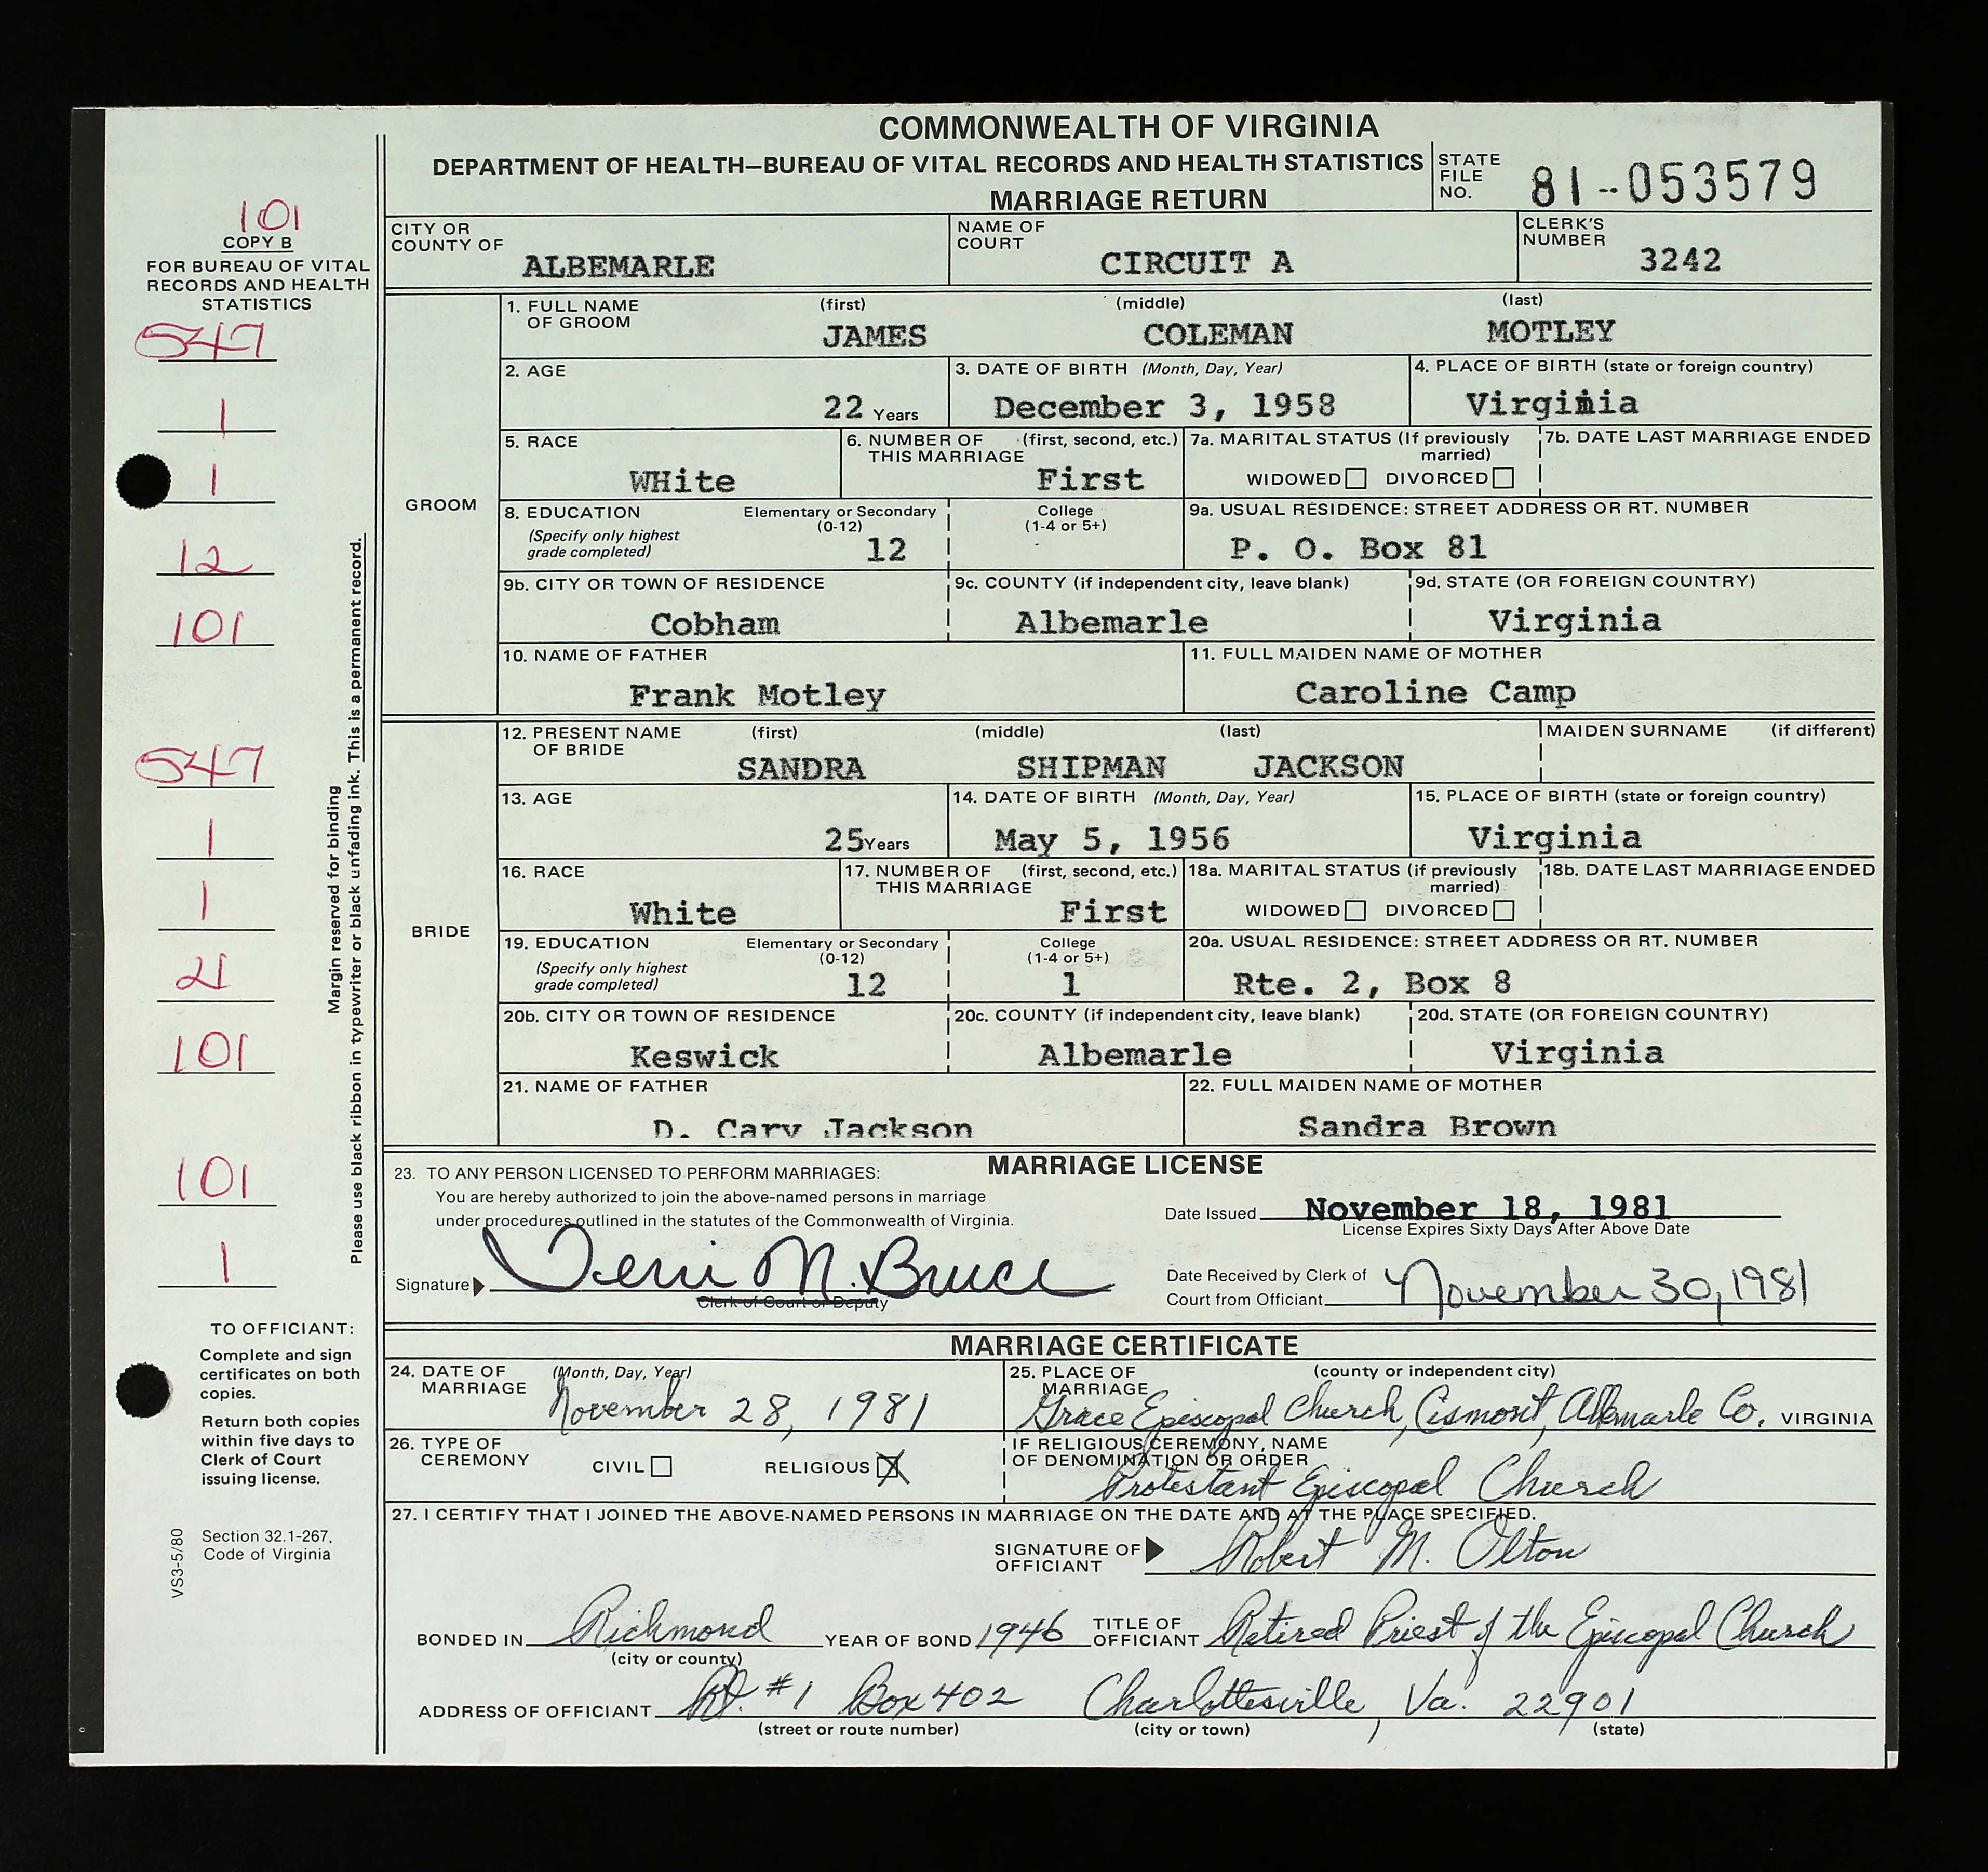 COMMONWEALTH OF VIRGINIA
DEPARTMENT OF HEALTH—BUREAU OF VITAL RECORDS AND HEALTH STATISTICS
MARRIAGE RETURN
STATE FILE NO. 81--053579
101
COPY B
FOR BUREAU OF VITAL
RECORDS AND HEALTH
STATISTICS
547
1
1
12
101
547
1
1
21
101
101
1
Margin reserved for binding
Please use black ribbon in typewriter or black unfading ink. This is a permanent record.
TO OFFICIANT:
Complete and sign
certificates on both
copies.
Return both copies
within five days to
Clerk of Court
issuing license.
Section 32.1-267,
Code of Virginia
VS3-5/80
CITY OR COUNTY OF ALBEMARLE
NAME OF COURT CIRCUIT A
CLERK'S NUMBER 3242
GROOM
1. FULL NAME OF GROOM (first) (middle) (last)
JAMES COLEMAN MOTLEY
2. AGE 22 Years
3. DATE OF BIRTH (Month, Day, Year) December 3, 1958
4. PLACE OF BIRTH (state or foreign country) Virginia
5. RACE WHite
6. NUMBER OF THIS MARRIAGE (first, second, etc.) First
7a. MARITAL STATUS (If previously married)
WIDOWED DIVORCED
7b. DATE LAST MARRIAGE ENDED
8. EDUCATION (Specify only highest grade completed)
Elementary or Secondary (0-12) 12
College (1-4 or 5+)
9a. USUAL RESIDENCE: STREET ADDRESS OR RT. NUMBER
P. O. Box 81
9b. CITY OR TOWN OF RESIDENCE Cobham
9c. COUNTY (if independent city, leave blank) Albemarle
9d. STATE (OR FOREIGN COUNTRY) Virginia
10. NAME OF FATHER Frank Motley
11. FULL MAIDEN NAME OF MOTHER Caroline Camp
BRIDE
12. PRESENT NAME OF BRIDE (first) (middle) (last) MAIDEN SURNAME (if different)
SANDRA SHIPMAN JACKSON
13. AGE 25 Years
14. DATE OF BIRTH (Month, Day, Year) May 5, 1956
15. PLACE OF BIRTH (state or foreign country) Virginia
16. RACE White
17. NUMBER OF THIS MARRIAGE (first, second, etc.) First
18a. MARITAL STATUS (if previously married)
WIDOWED DIVORCED
18b. DATE LAST MARRIAGE ENDED
19. EDUCATION (Specify only highest grade completed)
Elementary or Secondary (0-12) 12
College (1-4 or 5+) 1
20a. USUAL RESIDENCE: STREET ADDRESS OR RT. NUMBER
Rte. 2, Box 8
20b. CITY OR TOWN OF RESIDENCE Keswick
20c. COUNTY (if independent city, leave blank) Albemarle
20d. STATE (OR FOREIGN COUNTRY) Virginia
21. NAME OF FATHER D. Cary Jackson
22. FULL MAIDEN NAME OF MOTHER Sandra Brown
MARRIAGE LICENSE
23. TO ANY PERSON LICENSED TO PERFORM MARRIAGES:
You are hereby authorized to join the above-named persons in marriage
under procedures outlined in the statutes of the Commonwealth of Virginia.
Date Issued November 18, 1981
License Expires Sixty Days After Above Date
Signature Terri M. Bruce
Clerk of Court or Deputy
Date Received by Clerk of
Court from Officiant November 30, 1981
MARRIAGE CERTIFICATE
24. DATE OF MARRIAGE (Month, Day, Year) November 28, 1981
25. PLACE OF MARRIAGE (county or independent city)
Grace Episcopal Church, Cismont, Albemarle Co. VIRGINIA
26. TYPE OF CEREMONY CIVIL RELIGIOUS X
IF RELIGIOUS CEREMONY, NAME
OF DENOMINATION OR ORDER
Protestant Episcopal Church
27. I CERTIFY THAT I JOINED THE ABOVE-NAMED PERSONS IN MARRIAGE ON THE DATE AND AT THE PLACE SPECIFIED.
SIGNATURE OF OFFICIANT Robert M. Olton
BONDED IN Richmond YEAR OF BOND 1946 TITLE OF OFFICIANT Retired Priest of the Episcopal Church
(city or county)
ADDRESS OF OFFICIANT Rt. #1 Box 402 Charlottesville, Va. 22901
(street or route number) (city or town) (state)